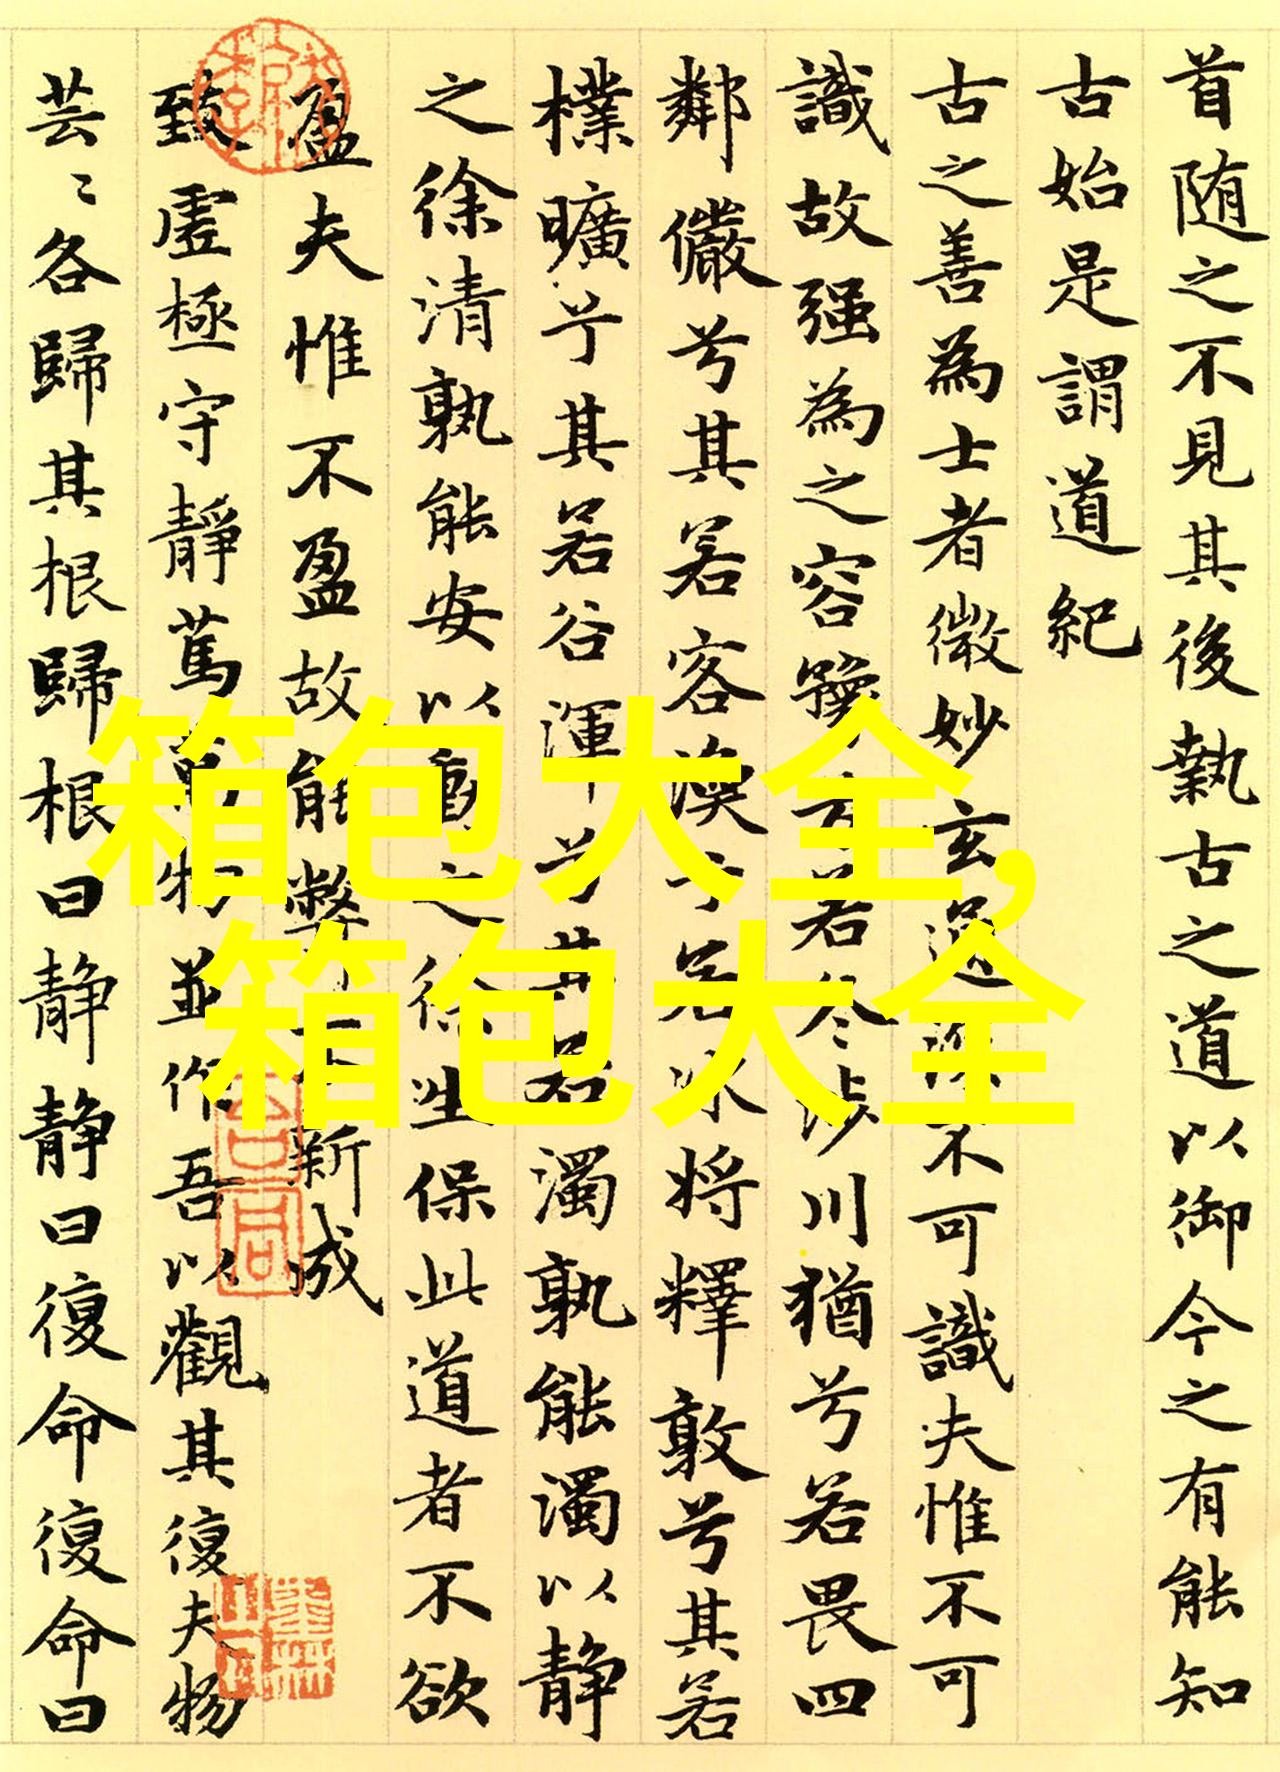 首随之不見其後執古之道以御今之有能知
古始是謂道紀
古之善為士者微妙玄通深不可識夫惟不可
識故强為之容豫兮若冬涉川猶兮若畏四
鄰儼兮其若客渙兮若冰將釋敦兮其若
樸曠兮其若谷渾兮其若濁孰能濁以靜
之徐清孰能安以動之徐生保此道者不欲
盈夫惟不盈故能弊不新成
致虛極守靜篤萬物並作吾以觀其復夫物
芸〻各歸其根歸根曰静静曰復命復命曰
箱包大全,
箱包大全